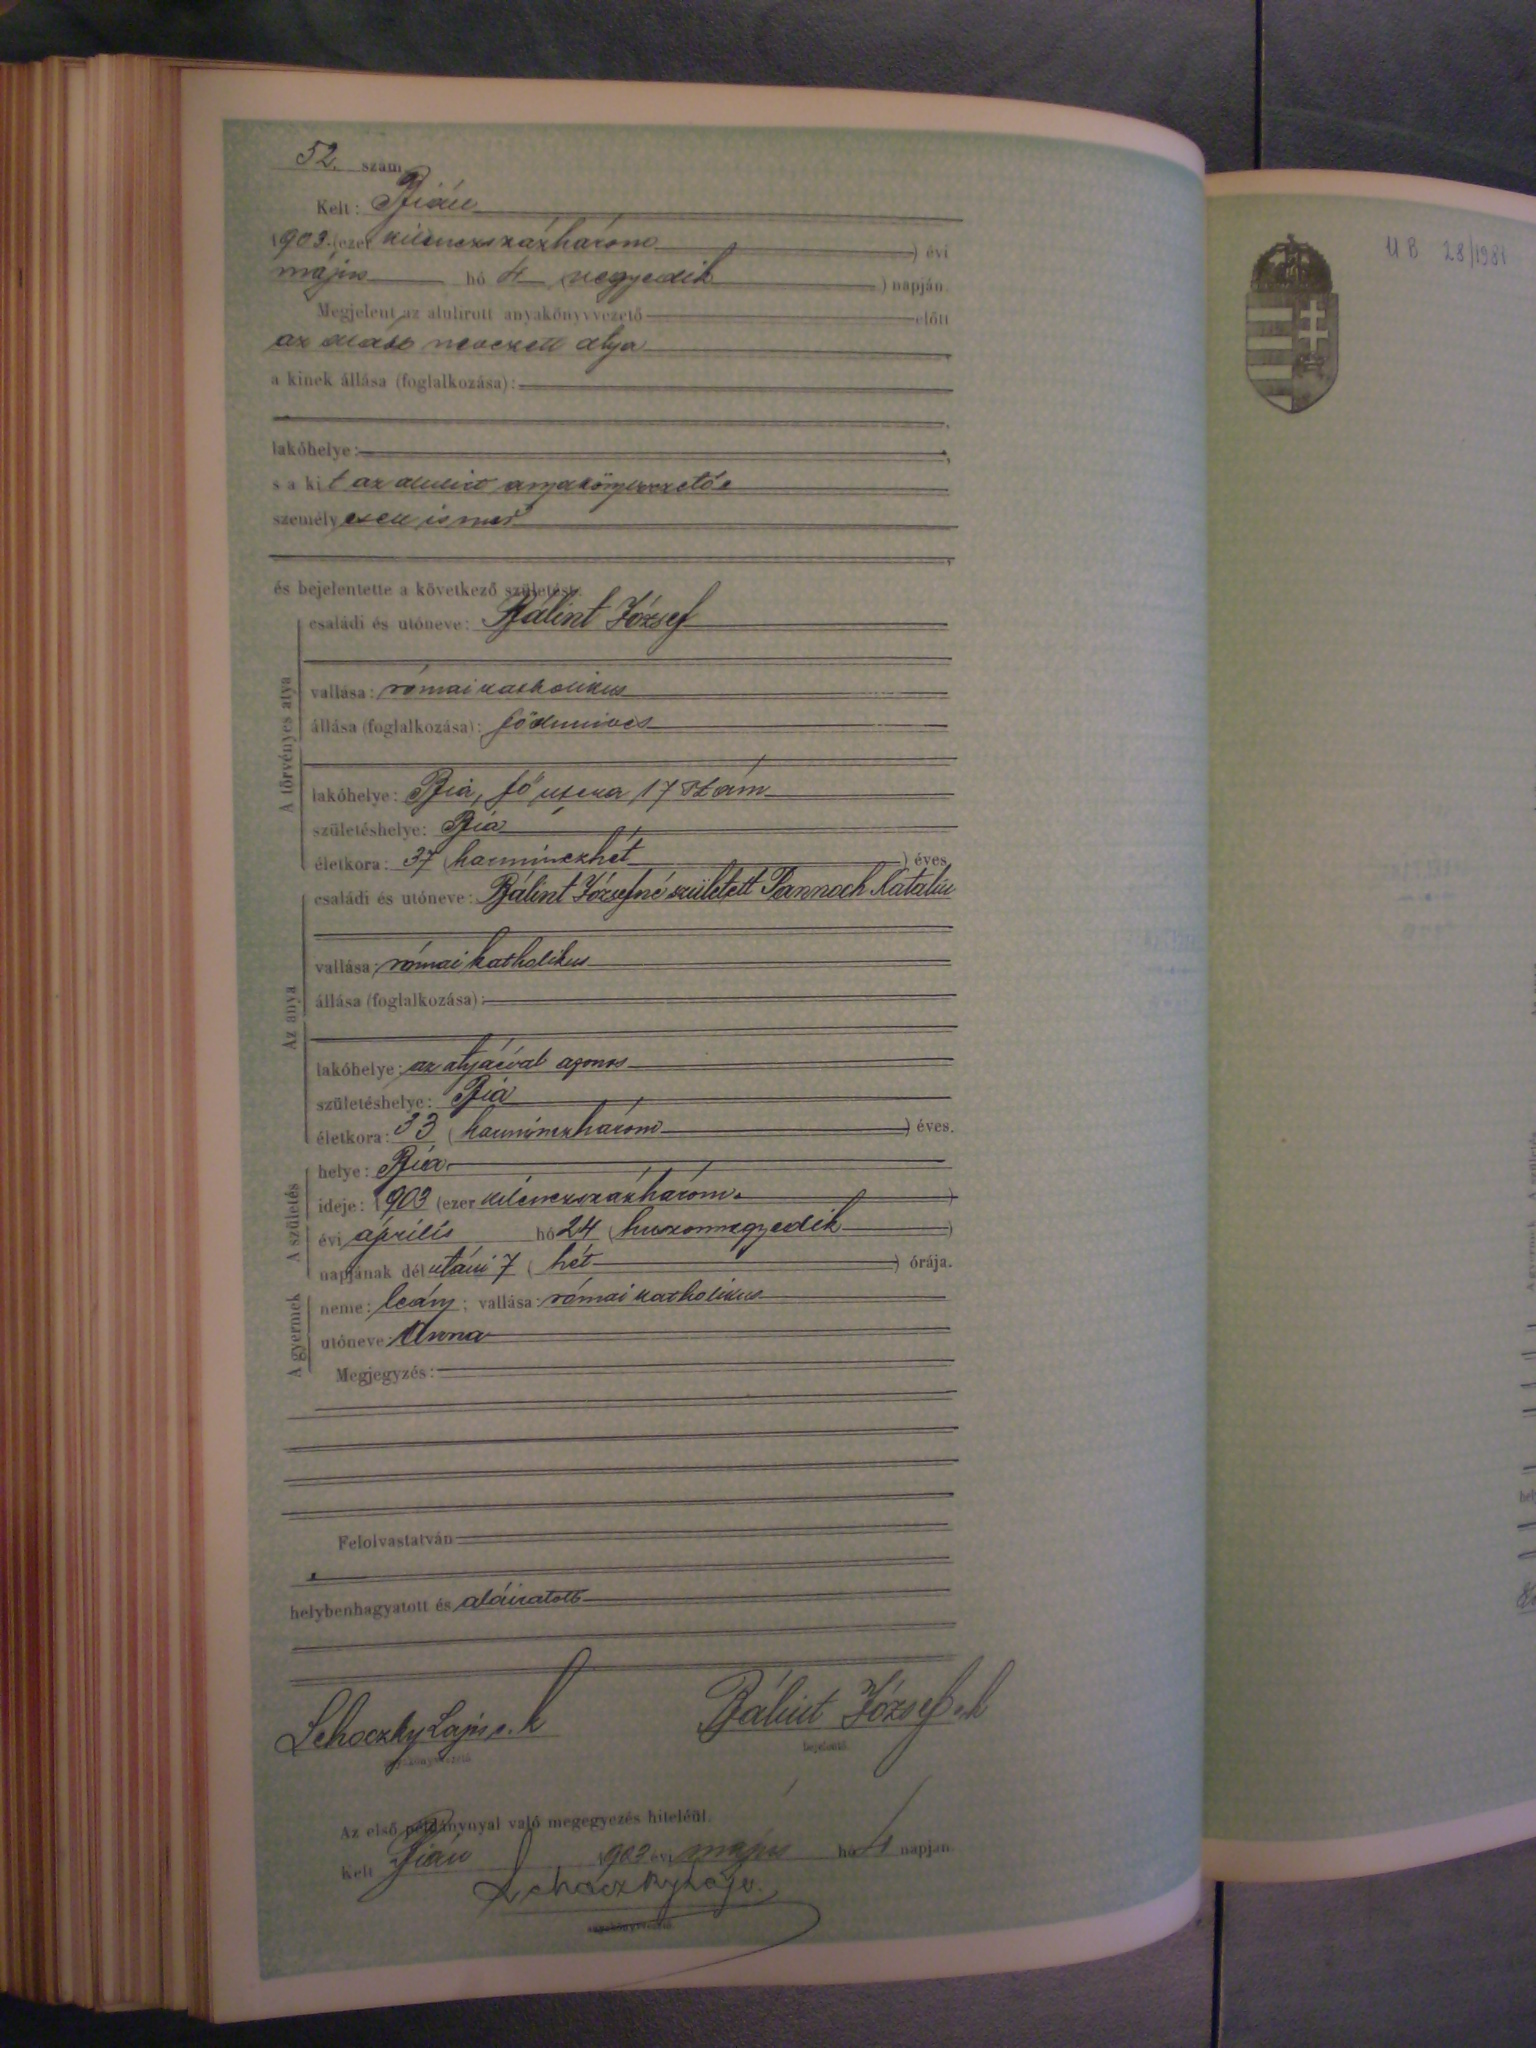 52. szám
Kelt: Bián
1903. (ezer kilenczszázhárom) évi
május hó 4 (negyedik) napján.
Megjelent az alulirott anyakönyvvezető előtt
az alább nevezett atya
a kinek állása (foglalkozása):
lakóhelye:
s a kit az alulirt anyakönyvvezető
személyesen ismer
és bejelentette a következő születést:
A törvényes atya
családi és utóneve: Bálint József
vallása: római katholikus
állása (foglalkozása): födmives
lakóhelye: Bia, fő utcza 17 szám
születéshelye: Bia
életkora: 37 (harminczhét) éves.
Az anya
családi és utóneve: Bálint Józsefné született Katalin
vallása: római katholikus
állása (foglalkozása):
lakóhelye: az atyáéval azonos
születéshelye: Bia
életkora: 33 (harminczhárom) éves.
A születés
helye: Bia
ideje: 1903 (ezer kilenczszázhárom.)
évi április hó 24 (huszonnegyedik)
napjának délutáni 7 (hét) órája.
A gyermek
neme: leány; vallása: római katholikus
utóneve: Anna
Megjegyzés:
Felolvastatván
helybenhagyatott és aláiratott
Schoczky Lajos s. k Bálint József s. k
anyakönyvvezető bejelentő
Az első példánynyal való megegyezés hiteléül.
Kelt Bián 1903 évi május hó 4 napján.
Schoczky Lajos
anyakönyvvezető
UB 28/1981